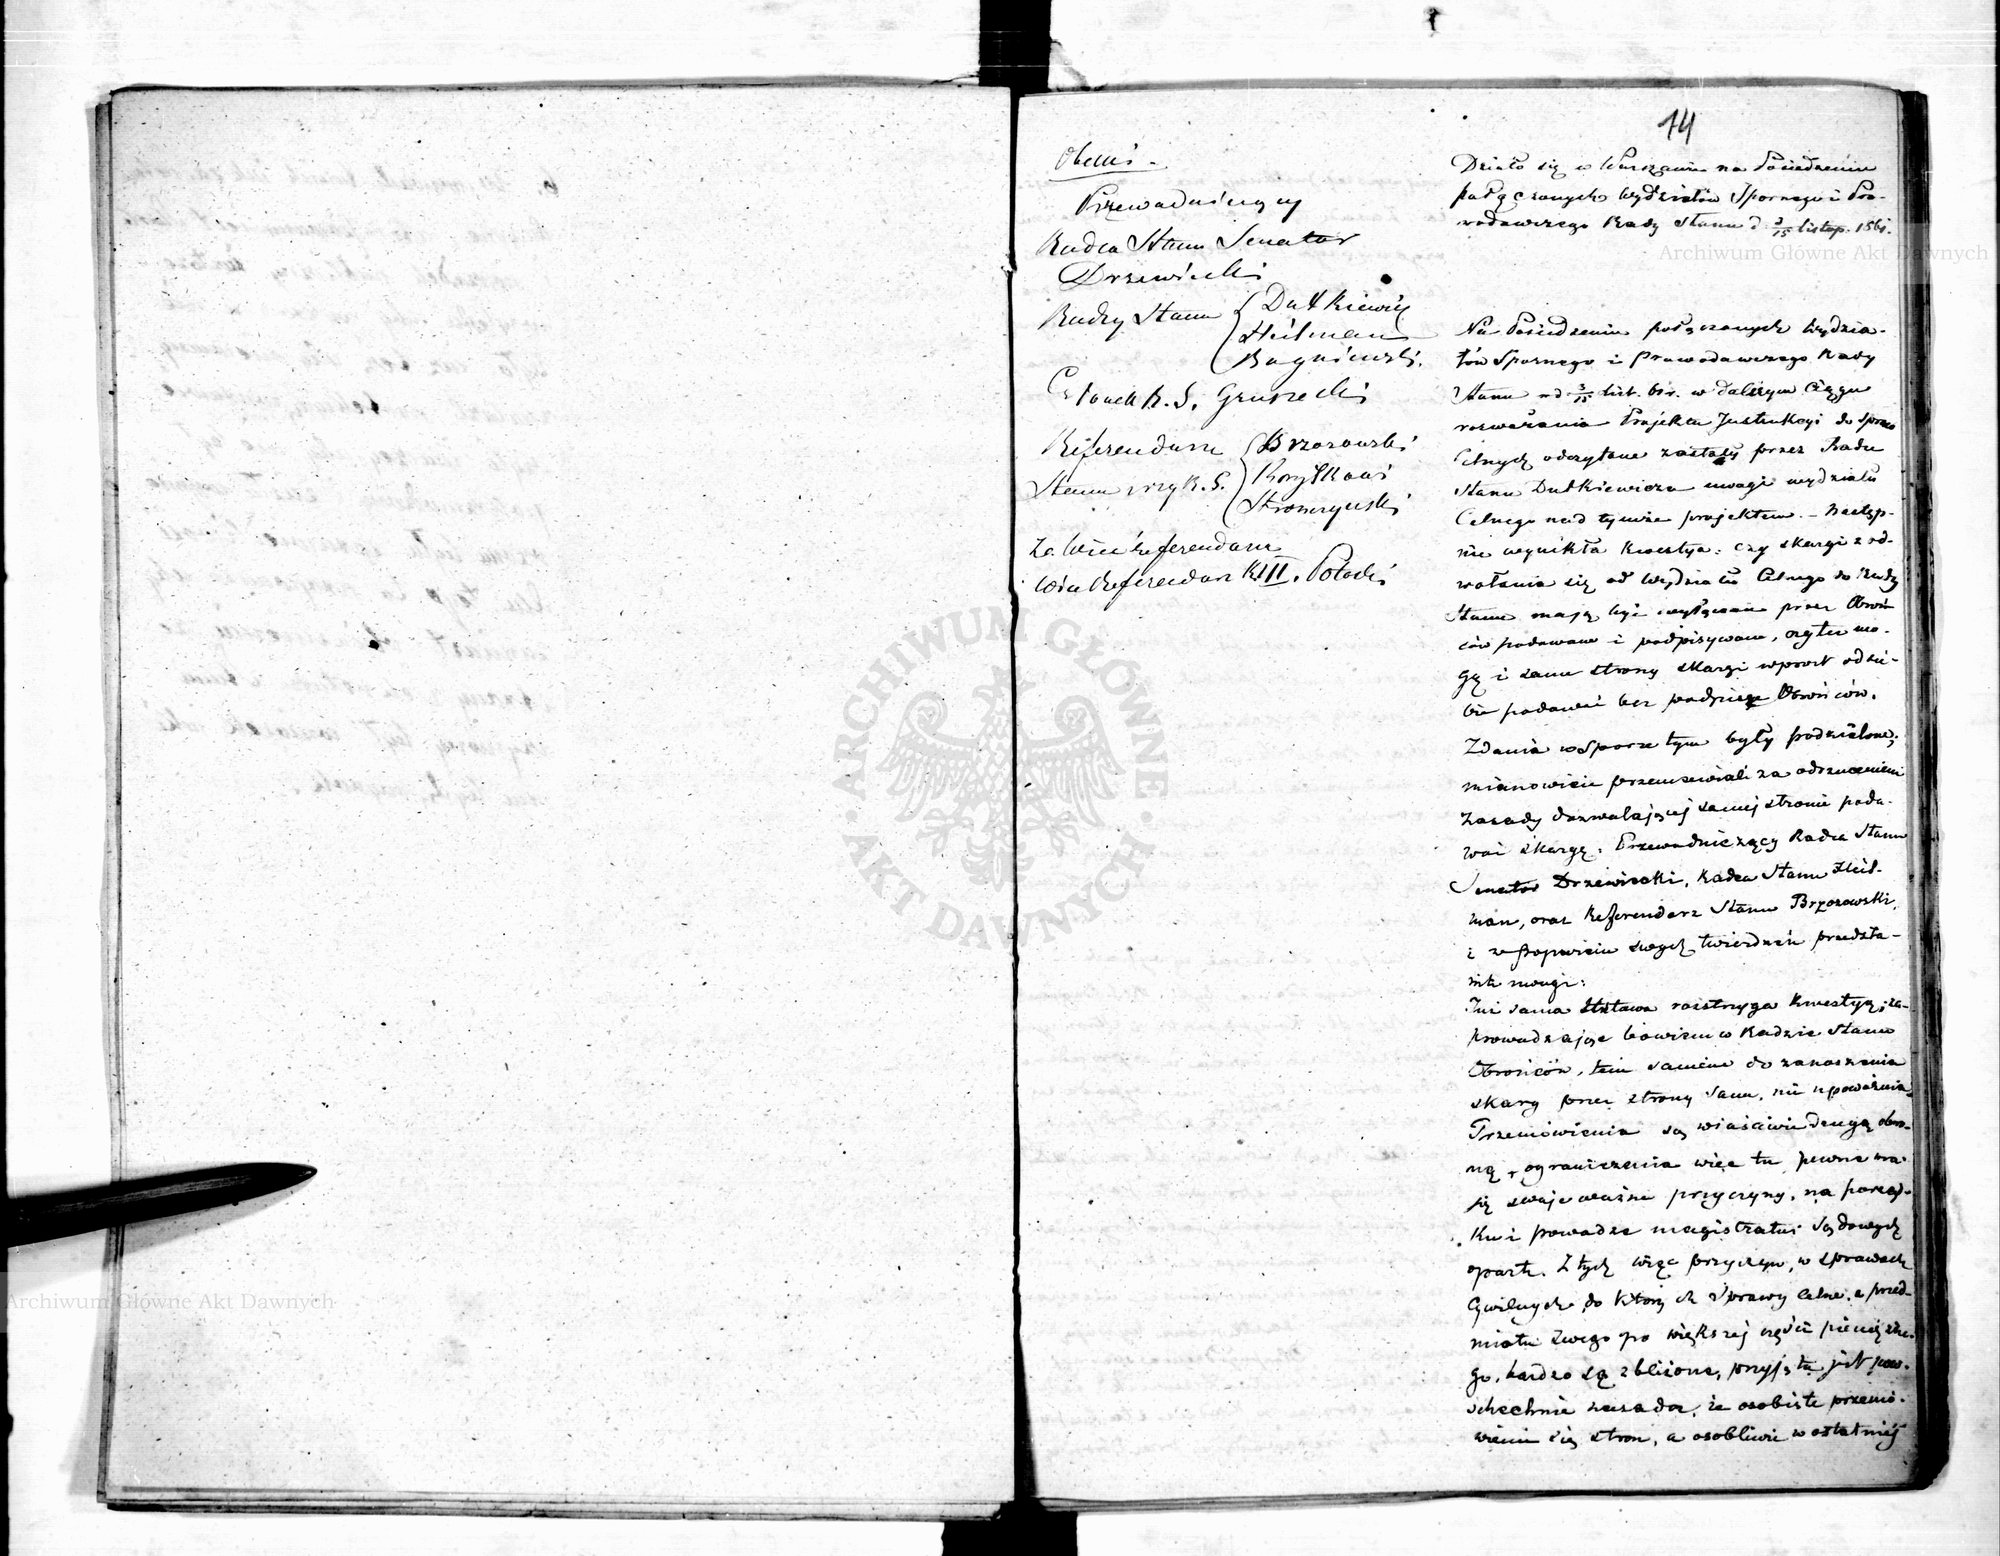 14
Obecni.
Przewodniczący
Radca Stanu Senator
Drzewiecki
Radcy Stanu Dutkiewicz
Heilman
Bagniewski.
Członek R. S. Gruszecki
Referendarze Brzozowski
Stanu przy R. S. Korytkowski
Stronczyński
Za Wice referendarza
Wice Referendarz KIII. Potocki
Działo się w Warszawie na Posiedzeniu
połączonych Wydziałów Spornego i Pra-
wodawczego Rady Stanu d. 3/15 listop. 1861.
Na Posiedzeniu połączonych Wydzia-
łów Spornego i Prawodawczego Rady
Stanu z d. 3/15 list. 61 r. w dalszym ciągu
rozważania Projektu Instrukcyi do spraw
Celnych odczytane zostały przez Radcę
Stanu Dutkiewicza uwagi wydziału
Celnego nad tymże projektem. – Następ-
nie wynikła kwestya: czy skargi z od-
wołania się od Wydziału Celnego do Rady
Stanu mają być wyłącznie przez Obroń
ców podawane i podpisywane, czy też mo-
gą i same strony skargi wprost od sie-
bie podawać bez podpisu Obrońców.
Zdania w sporze tym były podzielone;
mianowicie przemawiali za odrzuceniem
zasady dozwalającej samej stronie poda-
wać skargę: Przewodniczący Radca Stanu
Senator Drzewiecki, Radca Stanu Heil-
man, oraz Referendarz Stanu Brzozowski,
i w poparciu swych twierdzeń przedsta-
wili uwagi:
Już sama Ustawa rozstrzyga kwestyą; za-
prowadzając bowiem w Radzie Stanu
Obrońców, tem samem do zanoszenia
skarg przez strony same, nie upoważnia.
Przemówienia są właściwie drugą obro-
ną, ograniczenia więc tu pewne ma-
ją swoje ważne przyczyny, na porząd-
ku i powadze magistratur sądowych
oparte. Z tych więc przyczyn, w sprawach
Cywilnych do których sprawy Celne, z przed-
miotu swego po większej części pieniężne-
go, bardzo są zbliżone, przyjętą jest pow-
szechnie zasada, że osobiste przemó-
wienie się stron, a osobliwie w ostatniej
Archiwum Główne Akt Dawnych
Archiwum Główne Akt Dawnych
ARCHIWUM GŁÓWNE
AKT DAWNYCH